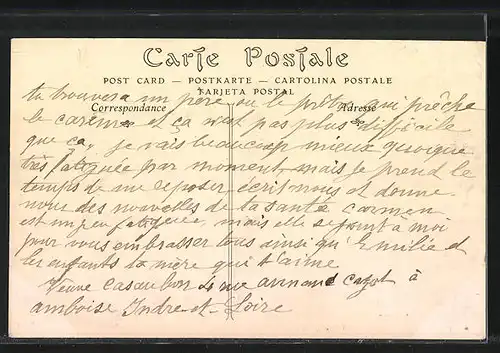 Carte Postale
POST CARD — POSTKARTE — CARTOLINA POSTALE
TARJETA POSTAL
Correspondance Adresse
tu trouvera un pere ou le prêtre qui prêche
le careme et ça n'est pas plus difficile
que ça, je vais beaucoup mieux quoique
très fatiguée par moment mais je prend le
temps de me reposer écris nous et donne
nous des nouvelles de ta santé carmen
est un peu fatiguée, mais elle se joint a moi
pour vous embrasser tous ainsi qu'Emilie et
les enfants ta mère qui t'aime
Veuve Casaubon armand cazot à
amboise Indre-et-Loire